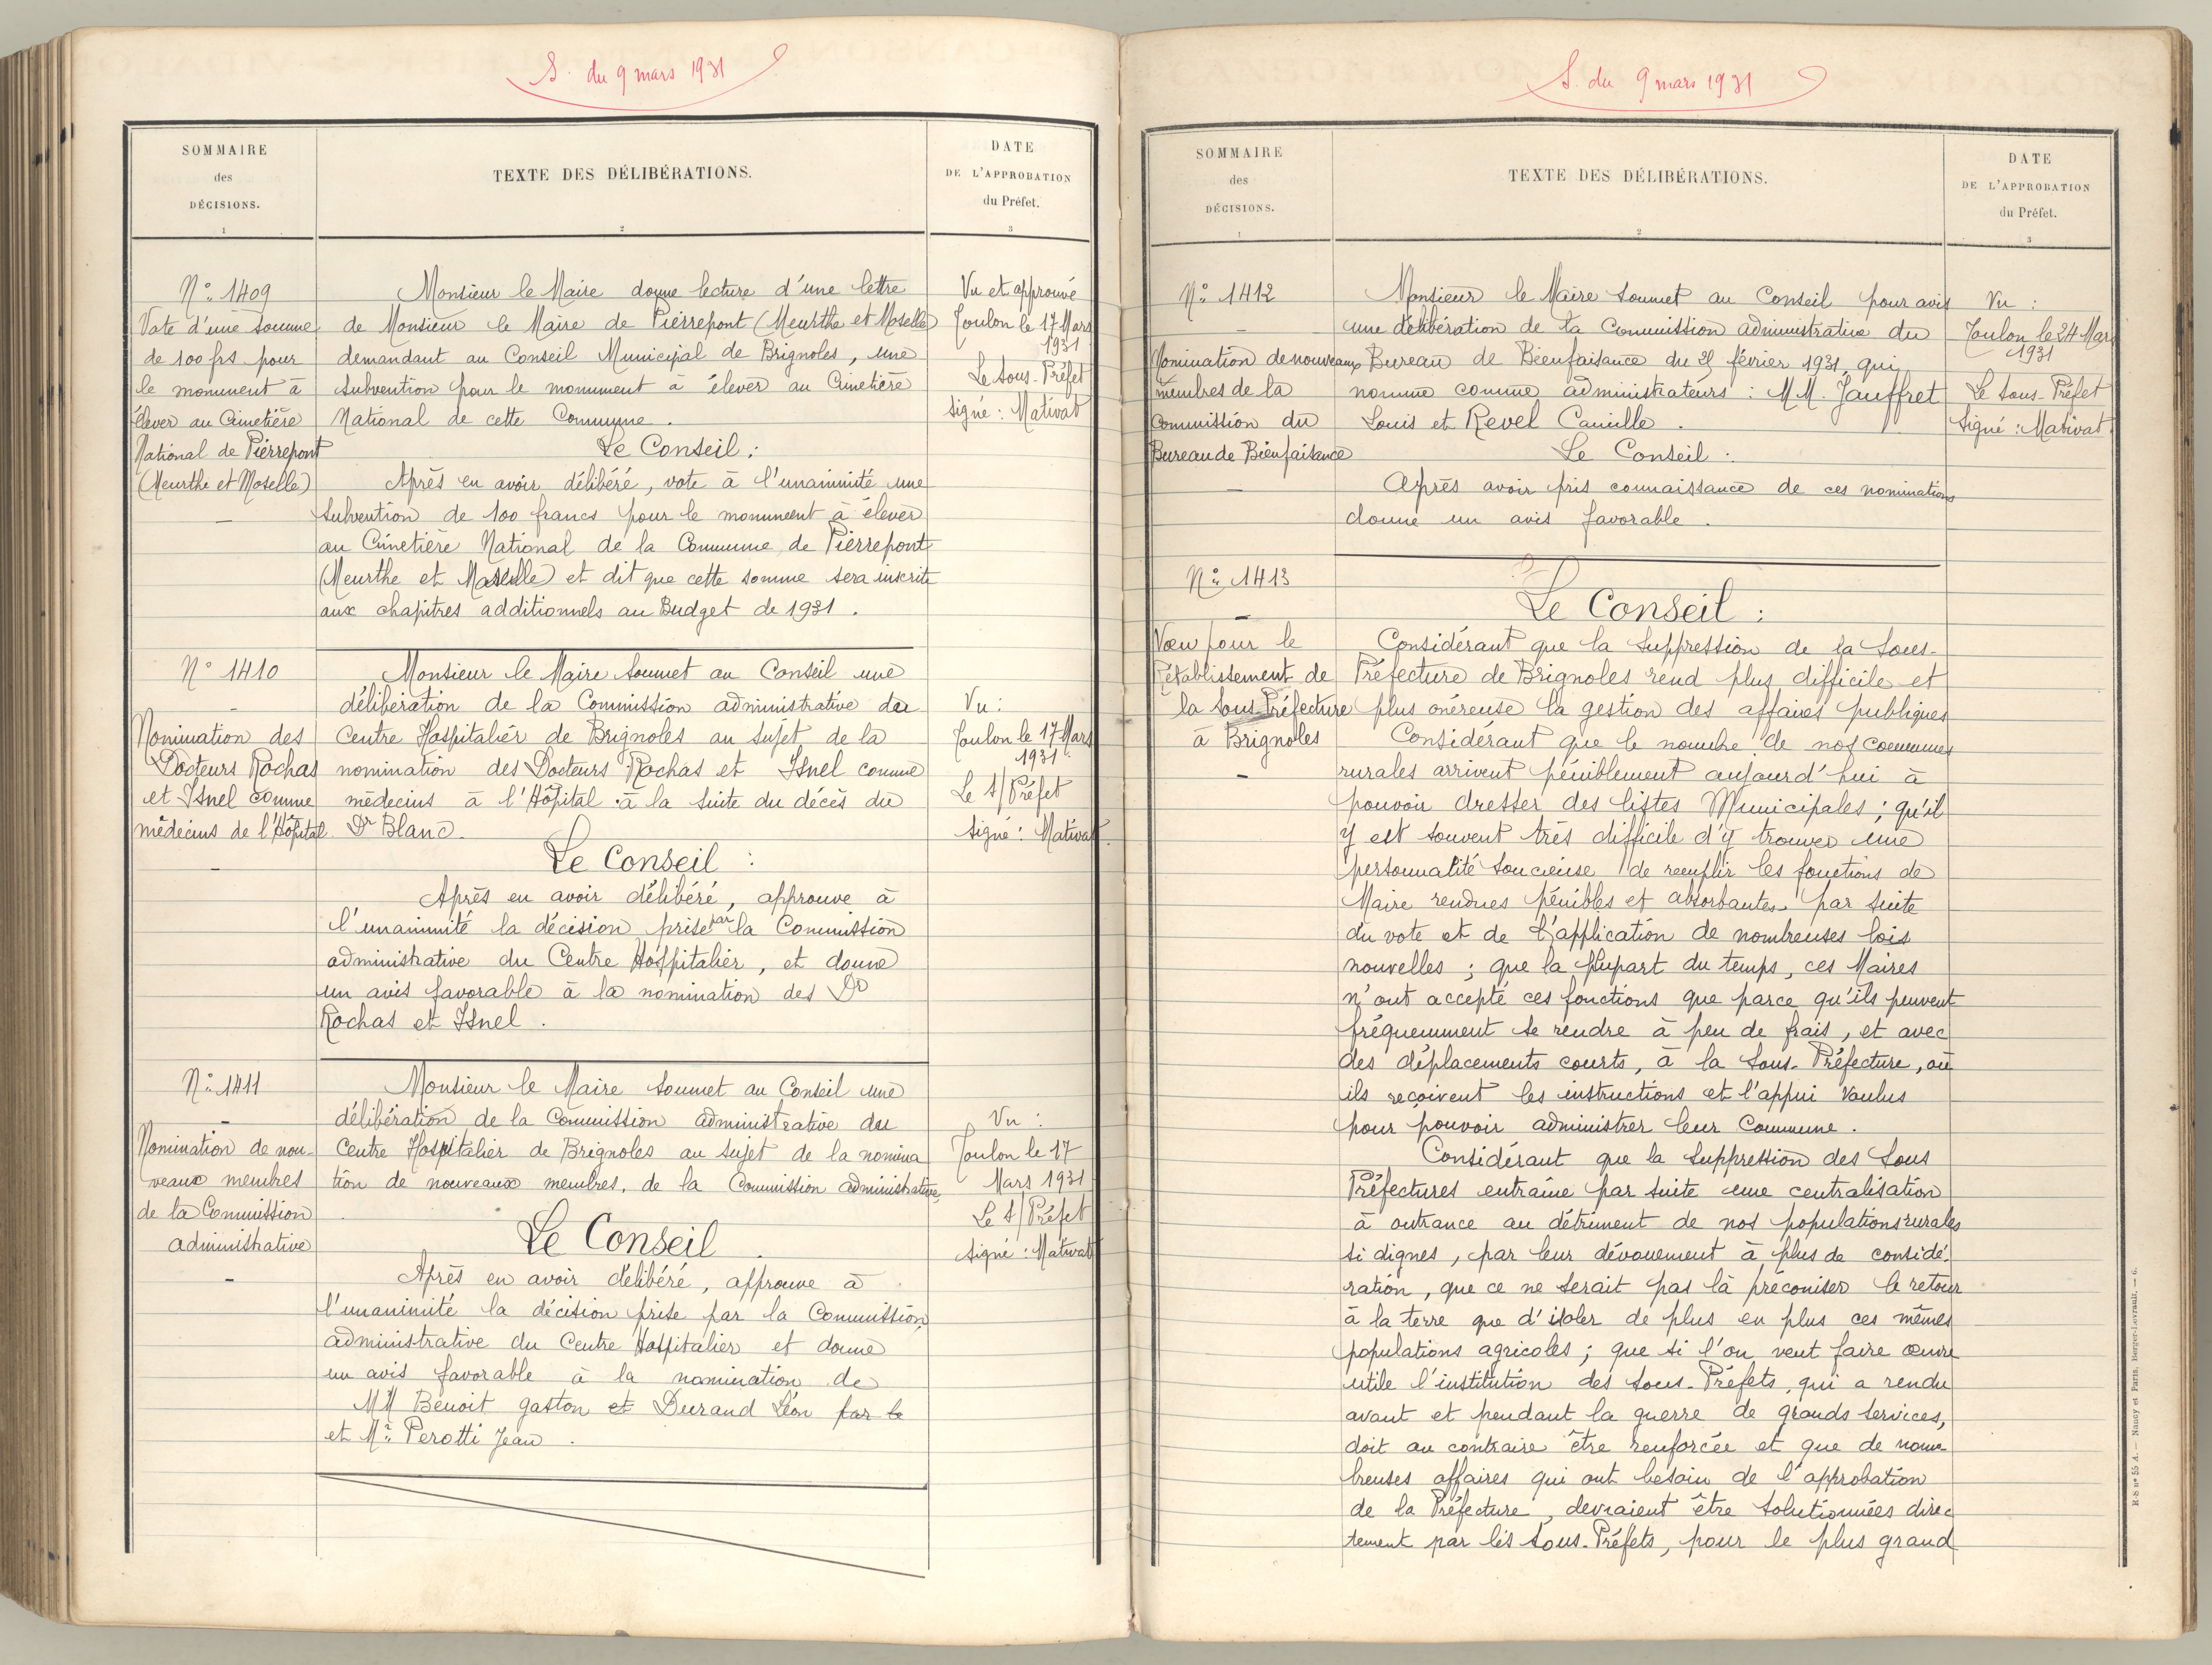 S. du 9 mars 1931
SOMMAIRE
des
DÉCISIONS.
1
TEXTE DES DÉLIBÉRATIONS.
2
DATE
DE L'APPROBATION
du Préfet.
3
N° 1409
Vote d'une somme
de 100 frs pour
le monument à
élever au Cimetière
National de Pierrepont
(Meurthe et Moselle)
—
Monsieur le Maire donne lecture d'une lettre
de Monsieur le Maire de Pierrepont (Meurthe et Moselle)
demandant au Conseil Municipal de Brignoles, une
subvention pour le monument à élever au Cimetière
National de cette Commune.
Le Conseil :
Après en avoir délibéré, vote à l'unanimité une
subvention de 100 francs pour le monument à élever
au Cimetière National de la Commune de Pierrepont
(Meurthe et Moselle) et dit que cette somme sera inscrite
aux chapitres additionnels au Budget de 1931.
Vu et approuvé
Toulon le 17 Mars
1931
Le Sous-Préfet
Signé : Mativat
N° 1410
—
Nomination des
Docteurs Rochas
et Isnel comme
médecins de l'Hôpital
—
Monsieur le Maire soumet au Conseil une
délibération de la Commission administrative du
Centre Hospitalier de Brignoles au sujet de la
nomination des Docteurs Rochas et Isnel comme
médecins à l'Hôpital à la suite du décès du
Dr Blanc.
Le Conseil :
Après en avoir délibéré, approuve à
l'unanimité la décision prise par la Commission
administrative du Centre Hospitalier, et donne
un avis favorable à la nomination des Dr
Rochas et Isnel.
Vu :
Toulon le 17 Mars
1931.
Le S/Préfet
Signé : Mativat.
N° 1411
—
Nomination de nou-
veaux membres
de la Commission
administrative
—
Monsieur le Maire soumet au Conseil une
délibération de la Commission administrative du
Centre Hospitalier de Brignoles au sujet de la nomina
tion de nouveaux membres de la Commission administrative.
Le Conseil.
Après en avoir délibéré, approuve à
l'unanimité la décision prise par la Commission
administrative du Centre Hospitalier et donne
un avis favorable à la nomination de
MM Benoit gaston et Durand Léon par le
et Mr Perotti Jean.
Vu :
Toulon le 17
Mars 1931
Le S/Préfet
Signé : Mativat
S. du 9 mars 1931
SOMMAIRE
des
DÉCISIONS.
1
TEXTE DES DÉLIBÉRATIONS.
2
DATE
DE L'APPROBATION
du Préfet.
3
N° 1412
—
Nomination de nouveaux
membres de la
Commission du
Bureau de Bienfaisance
—
Monsieur le Maire soumet au Conseil pour avis
une délibération de la Commission administrative du
Bureau de Bienfaisance du février 1931, qui
nomme comme administrateurs : MM. Jauffret
Louis et Revel Camille.
Le Conseil :
Après avoir pris connaissance de ces nominations
donne un avis favorable.
Vu :
Toulon le 24 Mars
1931
Le Sous-Préfet
Signé : Mativat.
N° 1413
—
Vœu pour le
Rétablissement de
la Sous Préfecture
à Brignoles
—
Le Conseil :
Considérant que la suppression de la Sous-
Préfecture de Brignoles rend plus difficile et
plus onéreuse la gestion des affaires publiques
Considérant que le nombre de nos communes
rurales arrivent péniblement aujourd'hui à
pouvoir dresser des listes Municipales ; qu'il
y est souvent très difficile d'y trouver une
personnalité soucieuse de remplir les fonctions de
Maire rendues pénibles et absorbantes par suite
du vote et de l'application de nombreuses lois
nouvelles ; que la plupart du temps, ces Maires
n'ont accepté ces fonctions que parce qu'ils peuvent
fréquemment se rendre à peu de frais, et avec
des déplacements courts, à la Sous-Préfecture, où
ils reçoivent les instructions et l'appui voulus
pour pouvoir administrer leur Commune.
Considérant que la suppression des Sous
Préfectures entraîne par suite une centralisation
à outrance au détriment de nos populations rurales
si dignes, par leur dévouement à plus de considé-
ration, que ce ne serait pas là préconiser le retour
à la terre que d'isoler de plus en plus ces mêmes
populations agricoles ; que si l'on veut faire œuvre
utile l'institution des Sous-Préfets, qui a rendu
avant et pendant la guerre de grands services,
doit au contraire être renforcée et que de nom-
breuses affaires qui ont besoin de l'approbation
de la Préfecture, devraient être solutionnées direc
tement par les Sous-Préfets, pour le plus grand
R-S n° 55 A. — Nancy et Paris, Berger-Levrault. — 6.